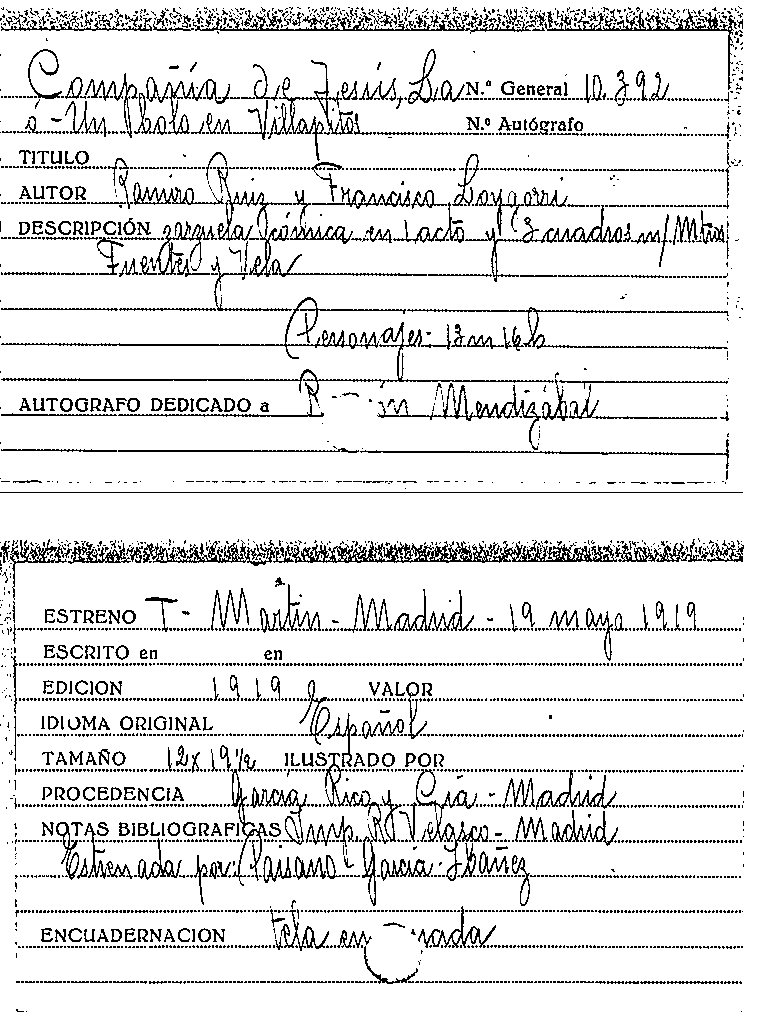 Compañía de Jesús, La N.º General 10.392
ó - Un bolo en Villapitos N.º Autógrafo
TITULO
AUTOR Ramiro Ruiz y Francisco Loygorri
DESCRIPCIÓN zarzuela cómica en 1 acto y 3 cuadros m/ Mtros
Fuentes y Vela
Personajes: 13 m 16 h
AUTOGRAFO DEDICADO a Mendizábal
ESTRENO T - Martín - Madrid - 19 mayo 1919
ESCRITO en en
EDICION 1919 VALOR
IDIOMA ORIGINAL Español
TAMAÑO 12 x 19 1/2 ILUSTRADO POR
PROCEDENCIA García Rico y Cía - Madrid
NOTAS BIBLIOGRAFICAS Imp. R. Velasco - Madrid
Estrenada por: Paisano - García - Ibáñez
ENCUADERNACION tela